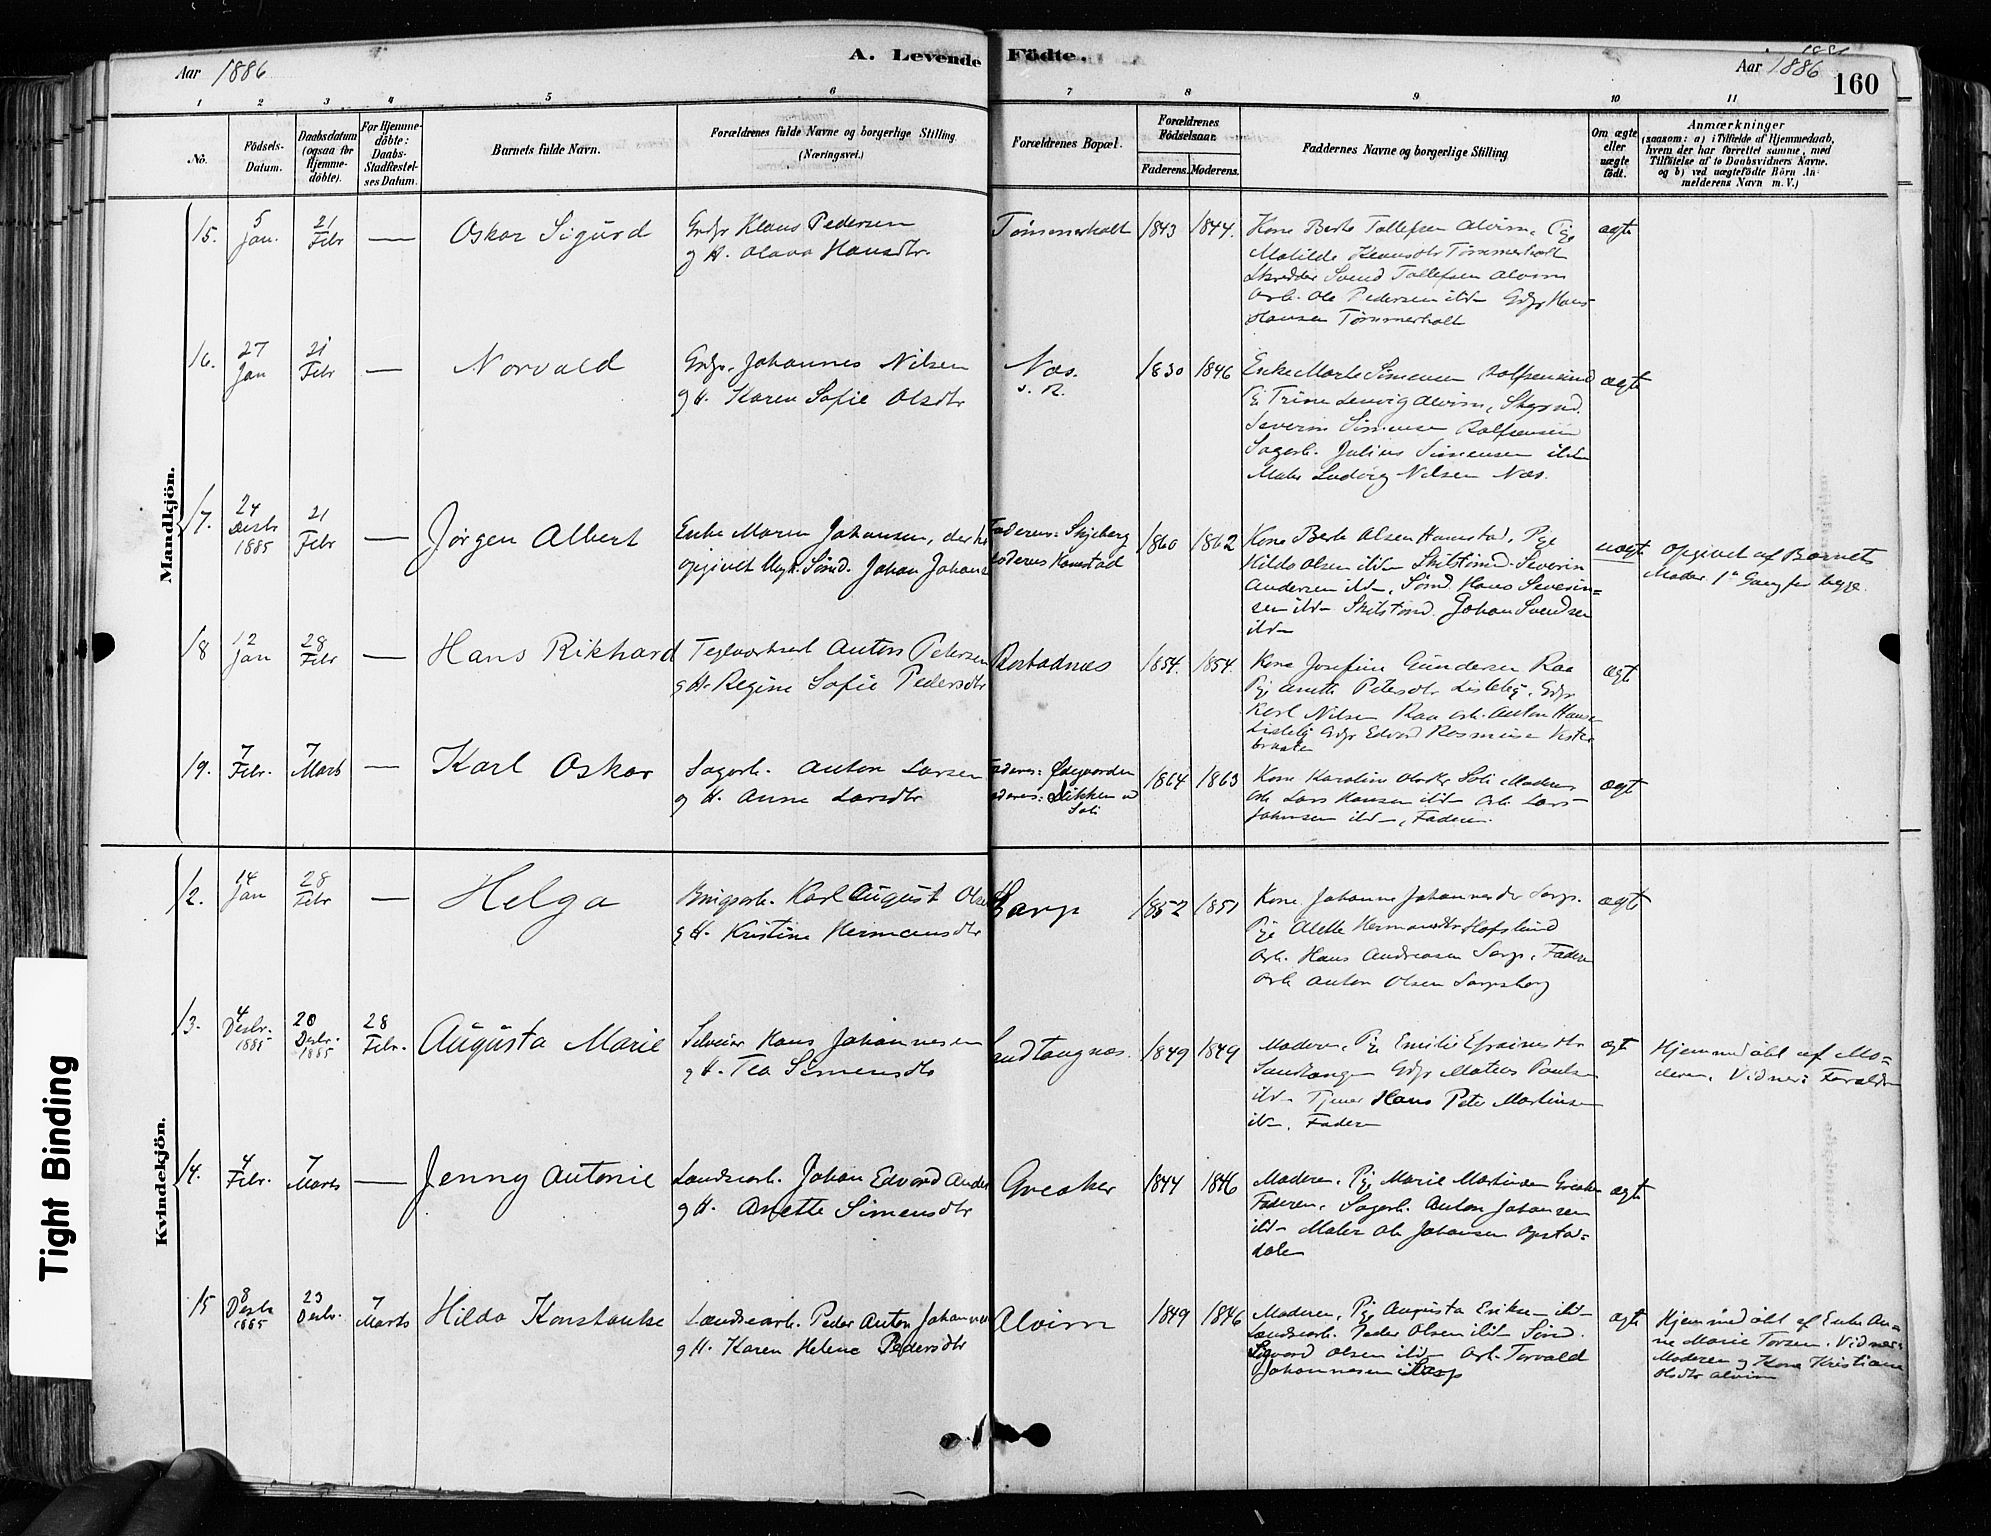 Aar 1886
A. Levende Födte.
Aar 1886
160
1 2 3 4 5 6 7 8 9 10 11
No.
Födsels-Datum.
Daabsdatum (ogsaa for Hjemme-döbte).
For Hjemme-döbte: Daabs-Stadfæstel-ses Datum.
Barnets fulde Navn.
Forældrenes fulde Navne og borgerlige Stilling (Næringsvei.)
Forældrenes Bopæl.
Forældrenes Födselsaar.
Faderens. Moderens.
Faddernes Navne og borgerlige Stilling
Om ægte eller uægte födt.
Anmærkninger
(saasom: a) i Tilfælde af Hjemmedaab,
hvem der har forrettet samme, med
Tilföielse af to Daabsvidners Navne.
og b) ved uægtefödte Börn An-
melderens Navn m. V.)
Mandkjön.
15. 5 Jan. 21 Febr — Oskar Sigurd
Grdbr Klaus Pedersen
g H. Olava Hansdtr.
Tømmerholt 1843 1844.
Kone Berte Tollefsen Alvim, Pige
Matilde Klausdtr Tømmerholt
Skrædder Svend Tollefsen Alvim
Arb. Ole Pedersen ibd Grdbr Hans
Hansen Tømmerholt
ægte
16. 27 Jan 21 Febr — Norvald
Grdbr. Johannes Nilsen
g H. Karen Sofie Olsdtr
Næs. 1830 1846
Enke Marte Simensen
Pi Trine Alvim,
Severin Simensen
Sagarb. Julius Simensen ibd
Maler Ludvig Nilsen Næs.
ægte
17. 24 Desbr 1885 21 Febr — Jørgen Albert
Enke Maren Johansen, der har
opgivet Ungk. Sømd. Johan Johans
Faderens: Skjeberg
Moderens Hannestad
1860 1862
Kone Berte Olsen Hannestad, Pige
Hilda Olsen ibd Severin
Andersen ibd, Sømd. Hans Severin-
sen ibd Johan Svendsen
ibd
uægte
Opgivet af Barnets
Moder. 1ste Gang for begge.
18 12 Jan 28 Febr — Hans Rikhard
Teglværksarb Anton Petersen
g H. Regine Sofie Pedersdtr
Rostadnæs 1854. 1854.
Kone Josefine Gundersen Raa
Pige Anette Petersdtr Lisleby, Grdbr
Karl Nilsen Raa Arb. Anton Hansen
Lisleby Grdbr Edvard Rasmusen Vester-
braaten
ægte
19. 7 Febr. 7 Marts — Karl Oskar
Sagarb. Anton Larsen
g H. Anne Larsdtr
Faderens: Ødegaarden
Moderens: Slikken v
Soli
1864 1863
Kone Karoline Olsdtr Soli Moderen
Arb Lars Hansen ibd Arb Lars
Johnsen ibd, Faderen.
ægte
Kvindekjön.
12. 14 Jan 28 Febr — Helga
Brugsarb. Karl August Olsen
g H. Kristine Hermansdtr
Sarp 1852 1851
Kone Johanne Johannesdtr Sarp.
Pige Alette Hermansdtr Hafslund
Arb. Hans Andreasen Sarp, Faderen
Arb Anton Olsen Sarpsborg
ægte
13. 4 Desbr. 1885 20 Desbr. 1885 28 Febr. Augusta Marie
Selveier Hans Johannesen
g H. Tea Simensdtr
Sandtangnæs. 1849 1849
Moderen, Pige Emilie Efraimsdtr
Sandtangen Grdbr Mateus Paulsen
ibd Tjener Hans Peter Martinsen
ibd, Faderen
ægte
Hjemmedøbt af Mo-
deren. Vidner: Forældre
14. 4 Febr. 7 Marts — Jenny Antonie
Landsearb. Johan Edvard Ander
g H. Anette Simensdtr
Greaker 1844 1846
Moderen, Pige Marie Martinsen Greaker
Faderen, Sagarb. Anton Johansen
ibd Maler Ole Johansen Opstad-
dalen
ægte
15 8 Desbr 1885 23 Desbr. 7 Marts Hilda Konstanse
Landsearb. Peder Anton Johannes
g H. Karen Helene Pedersdtr
Alvim 1849 1846
Moderen, Pige Augusta Eriksen ibd
Landsearb. Olsen ibd Sømd.
Sigvard Olsen ibd Arb. Torvald
Johannesen Sarp
ægte
Hjemmedøbt af Enke An-
ne Marie Torsen. Vidner:
Moderen og Kone Kristiane
Olsdtr Alvim
Tight Binding